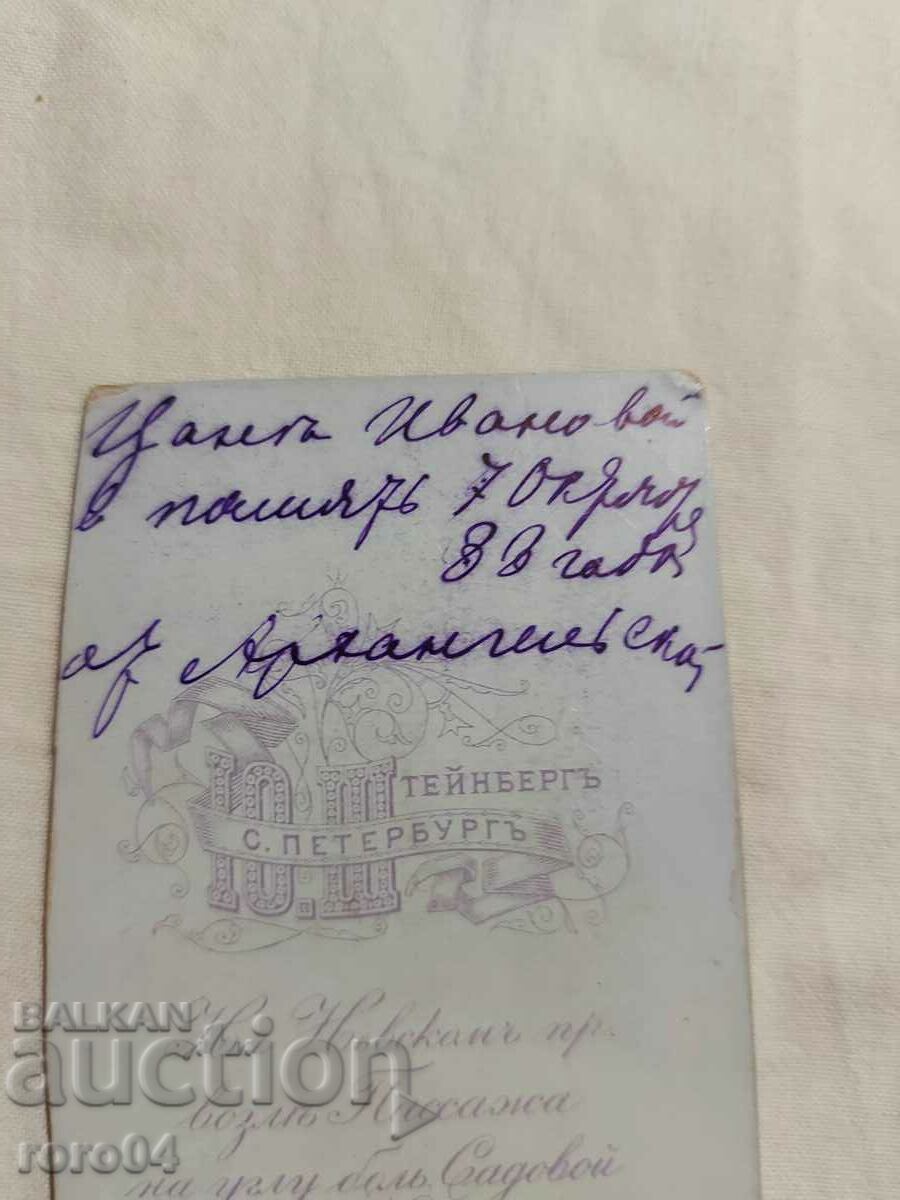 Цанѣ Ивановой
в память 7 Октября
88 года
от Архангельской
Ю. ШТЕЙНБЕРГЪ
С. ПЕТЕРБУРГЪ
На Невскомъ пр.
возлѣ Пассажа
на углу бол. Садовой
BALKAN
auction
roro04